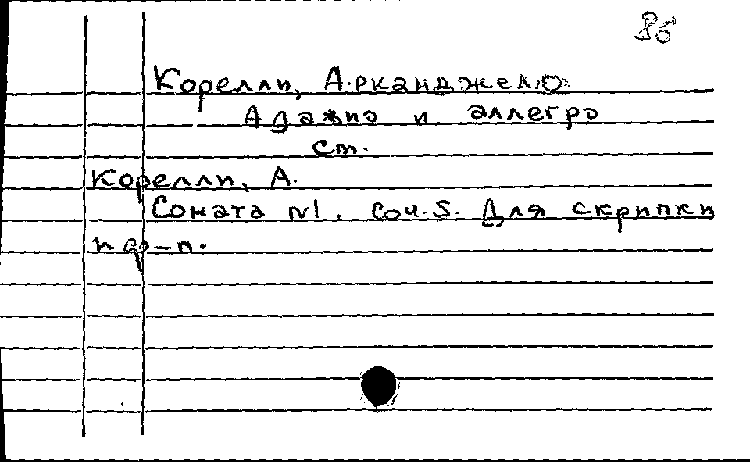 8б
Корелли, Арканджело
Адажио и аллегро
см.
Корелли, А.
Соната №1. Соч.5. Для скрипки
и ф-п.